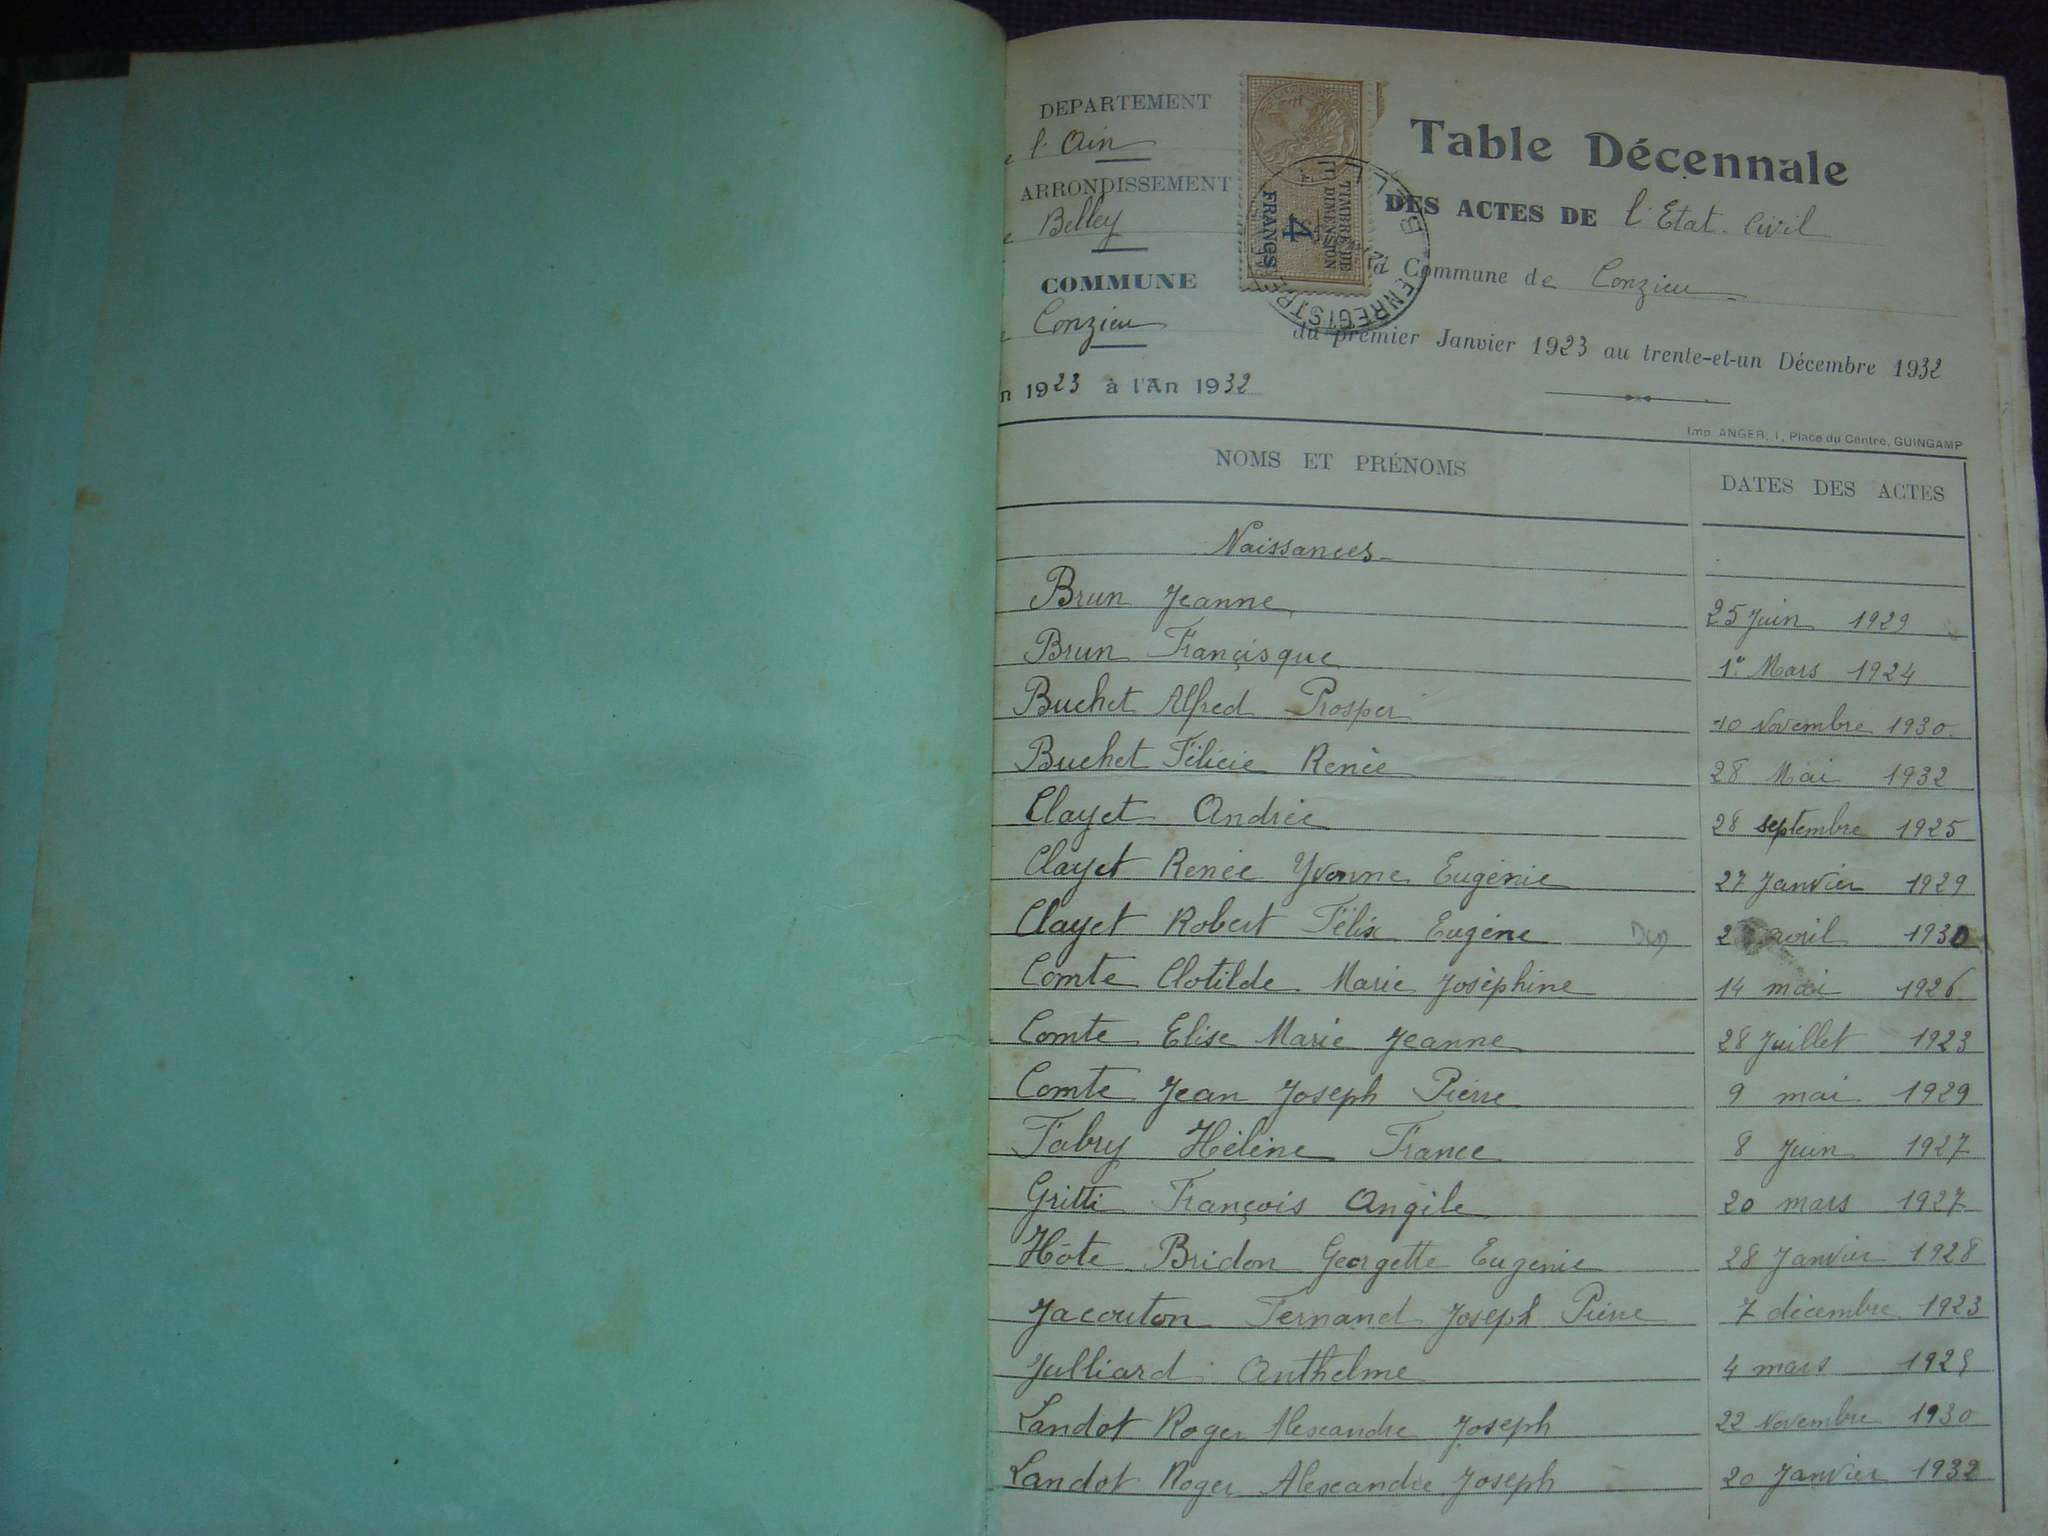 DEPARTEMENT
l'Ain
ARRONDISSEMENT
Belley
COMMUNE
Conzieu
n 1923 à l'An 1932
TIMBRE DE
DIMENSION
4
FRANCS
ENREGISTRE
Table Décennale
DES ACTES DE l'Etat Civil
Commune de Conzieu
du premier Janvier 1923 au trente-et-un Décembre 1932
Imp. ANGER, 1, Place du Centre, GUINGAMP
NOMS ET PRÉNOMS DATES DES ACTES
Naissances
Brun Jeanne 25 Juin 1929
Brun Françisque 1er Mars 1924
Buchet Alfred Prosper 10 Novembre 1930
Buchet Félicie Renée 28 Mai 1932
Clayet Andrée 28 septembre 1925
Clayet Renée Yvonne Eugénie 27 Janvier 1929
Clayet Robert Félix Eugène avril 1930
Comte Clotilde Marie Joséphine 14 mai 1926
Comte Elise Marie Jeanne 28 Juillet 1923
Comte Jean Joseph Pierre 9 mai 1929
Fabry Hélène France 8 Juin 1927
Gritti François Angile 20 mars 1927
Hôte Bridon Georgette Eugenie 28 Janvier 1928
Jacouton Fernand Joseph Pierre 7 décembre 1923
Julliard Anthelme 4 mars
Landot Roger Alexandre Joseph 22 Novembre 1930
Landot Roger Alexandre Joseph 20 Janvier 1932